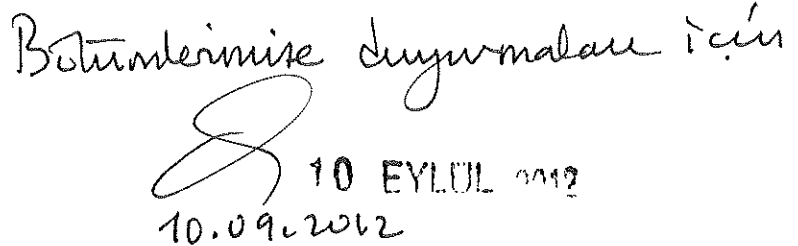 Bölümlerimize duyurmaları için
10 EYLÜL 2012
10.09.2012